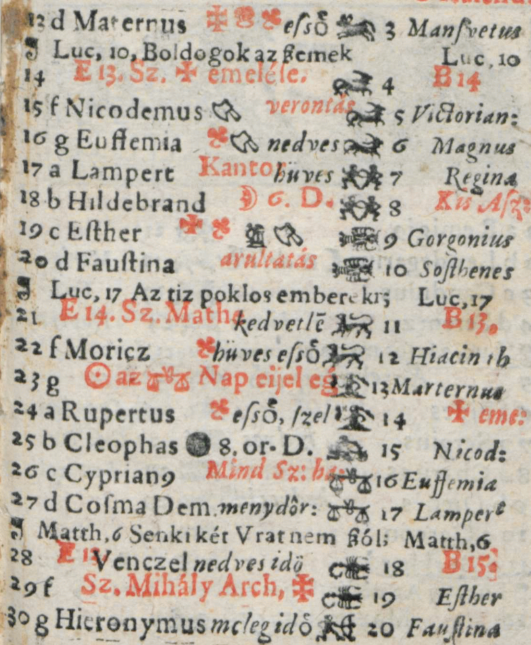 13 d Maternus esső 3 Mansvetus
Luc, 10, Boldogok az ßemek Luc, 10
14 E 13. Sz. ✠ emeléſe. 4 B 14
15 f Nicodemus verontás 5 Victorian:
16 g Euffemia nedves 6 Magnus
17 a Lampert Kantor hüves 7 Regina
18 b Hildebrand ☽ 6. D. 8 Kis
19 c Eſther ✠ 9 Gorgonius
20 d Fauſtina arultatás 10 Soſthenes
Luc, 17 Az tiz poklosember ekrş Luc, 17
21 E 14. Sz. Mathe kedvetlē 11 B 13.
22 f Moricz hüves eſső 12 Hiacinth
23 g ☉ az ♎ Nap eijel eg 13 Marternus
24 a Rupertus eſſő, ſzel 14 ✠ eme:
25 b Cleophas ● 8. or. D. 15 Nicod:
26 c Cyprian9 Mind Sz: ha: ♎ 16 Euffemia
27 d Coſma Dem. menydőr: ♎ 17 Lampert
Matth, 6 Senki két Vrat nem ßól: Matth, 6
28 E 15 Venczel nedves idő 18 B 15.
29 f Sz. Mihály Arch, ✠ 19 Eſther
30 g Hieronymus meleg idő 20 Fauſtina